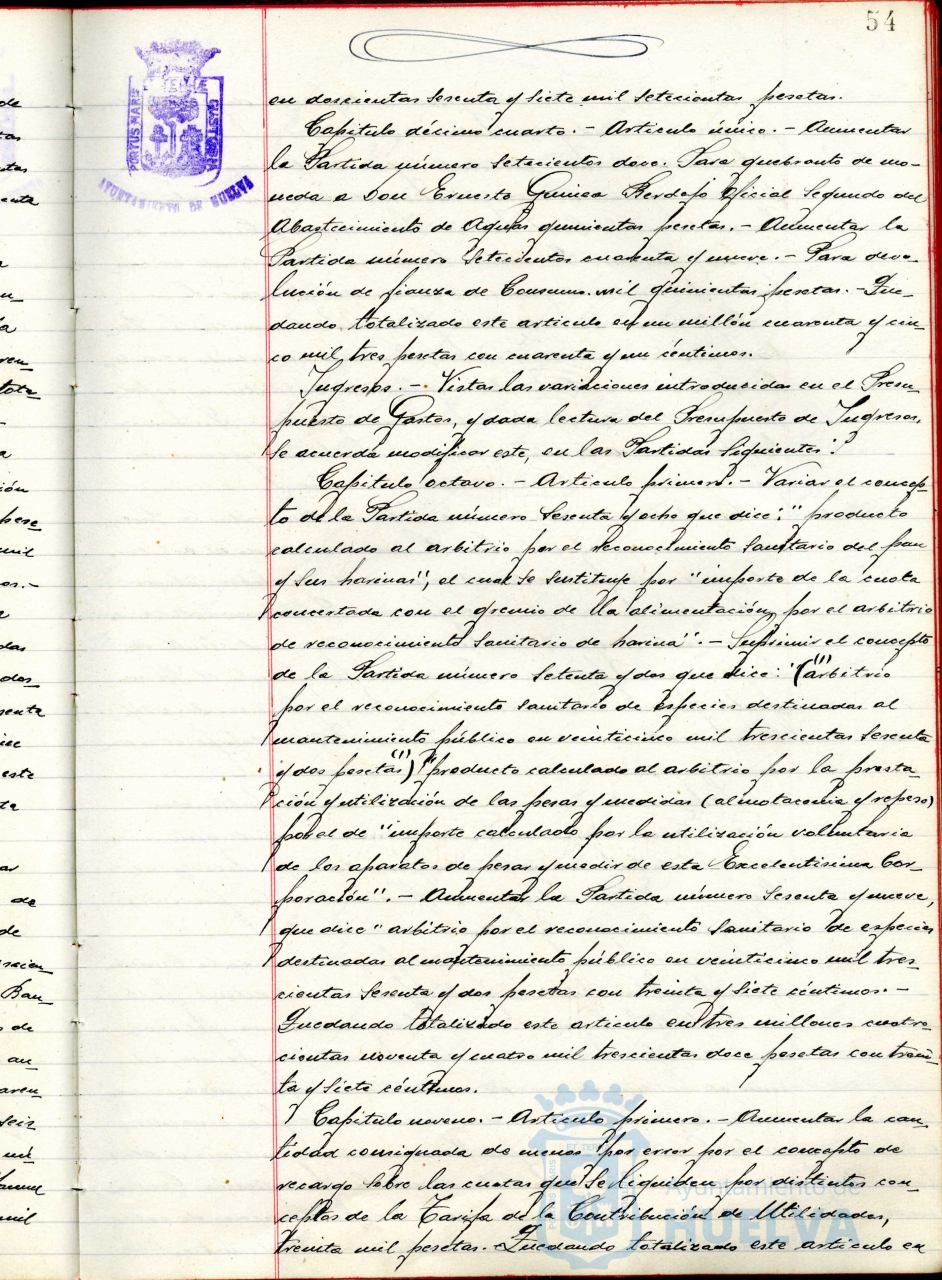 54
PORTUS MARIS ET TERRÆ CUSTODIA
AYUNTAMIENTO DE HUELVA
en doscientas sesenta y siete mil setecientas pesetas.
Capitulo décimo cuarto. - Articulo único. - Aumentar
la Partida número setecientos doce. Para quebranto de mo-
neda a Don Ernesto Guinea Oficial Segundo del
Abastecimiento de Aguas quinientas pesetas. - Aumentar la
Partida número setecientos cuarenta y nueve. - Para devo-
lución de fianza de Consumo. mil quinientas pesetas. - Que-
dando totalizado este articulo en un millón cuarenta y cin-
co mil, tres pesetas con cuarenta y un céntimos.
Ingresos. - Vistas las variaciones introducidas en el Presu-
puesto de Gastos, y dada lectura del Presupuesto de Ingresos,
se acuerda modificar este, en las Partidas siguientes:
Capitulo octavo. - Articulo primero. - Variar el concep-
to de la Partida número sesenta y ocho que dice: "producto
calculado al arbitrio por el reconocimiento sanitario del pan
y sus harinas", el cual se sustituye por "importe de la cuota
concertada con el gremio de la alimentación, por el arbitrio
de reconocimiento sanitario de harina". - Suprimir el concepto
de la Partida número setenta y dos que dice: "(arbitrio
por el reconocimiento sanitario de especies destinadas al
mantenimiento público en veinticinco mil trescientas sesenta
y dos pesetas) "producto calculado al arbitrio por la presta-
ción y utilización de las pesas y medidas (almotacenia y repeso)
por el de "importe calculado por la utilización voluntaria
de los aparatos de pesar y medir de esta Excelentisima Cor-
poración". - Aumentar la Partida número sesenta y nueve,
que dice "arbitrio por el reconocimiento sanitario de especies
destinadas al mantenimiento público en veinticinco mil tres-
cientas sesenta y dos pesetas con treinta y siete céntimos. -
Quedando totalizado este articulo en tres millones cuatro-
cientas noventa y cuatro mil trescientas doce pesetas con trein-
ta y siete céntimos.
Capitulo noveno. - Articulo primero. - Aumentar la can-
tidad consignada de menos por error por el concepto de
recargo sobre las cuotas que se liquiden por distintos con-
ceptos de la Tarifa de la Contribución de Utilidades,
treinta mil pesetas. Quedando totalizado este articulo en
Ayuntamiento de
HUELVA